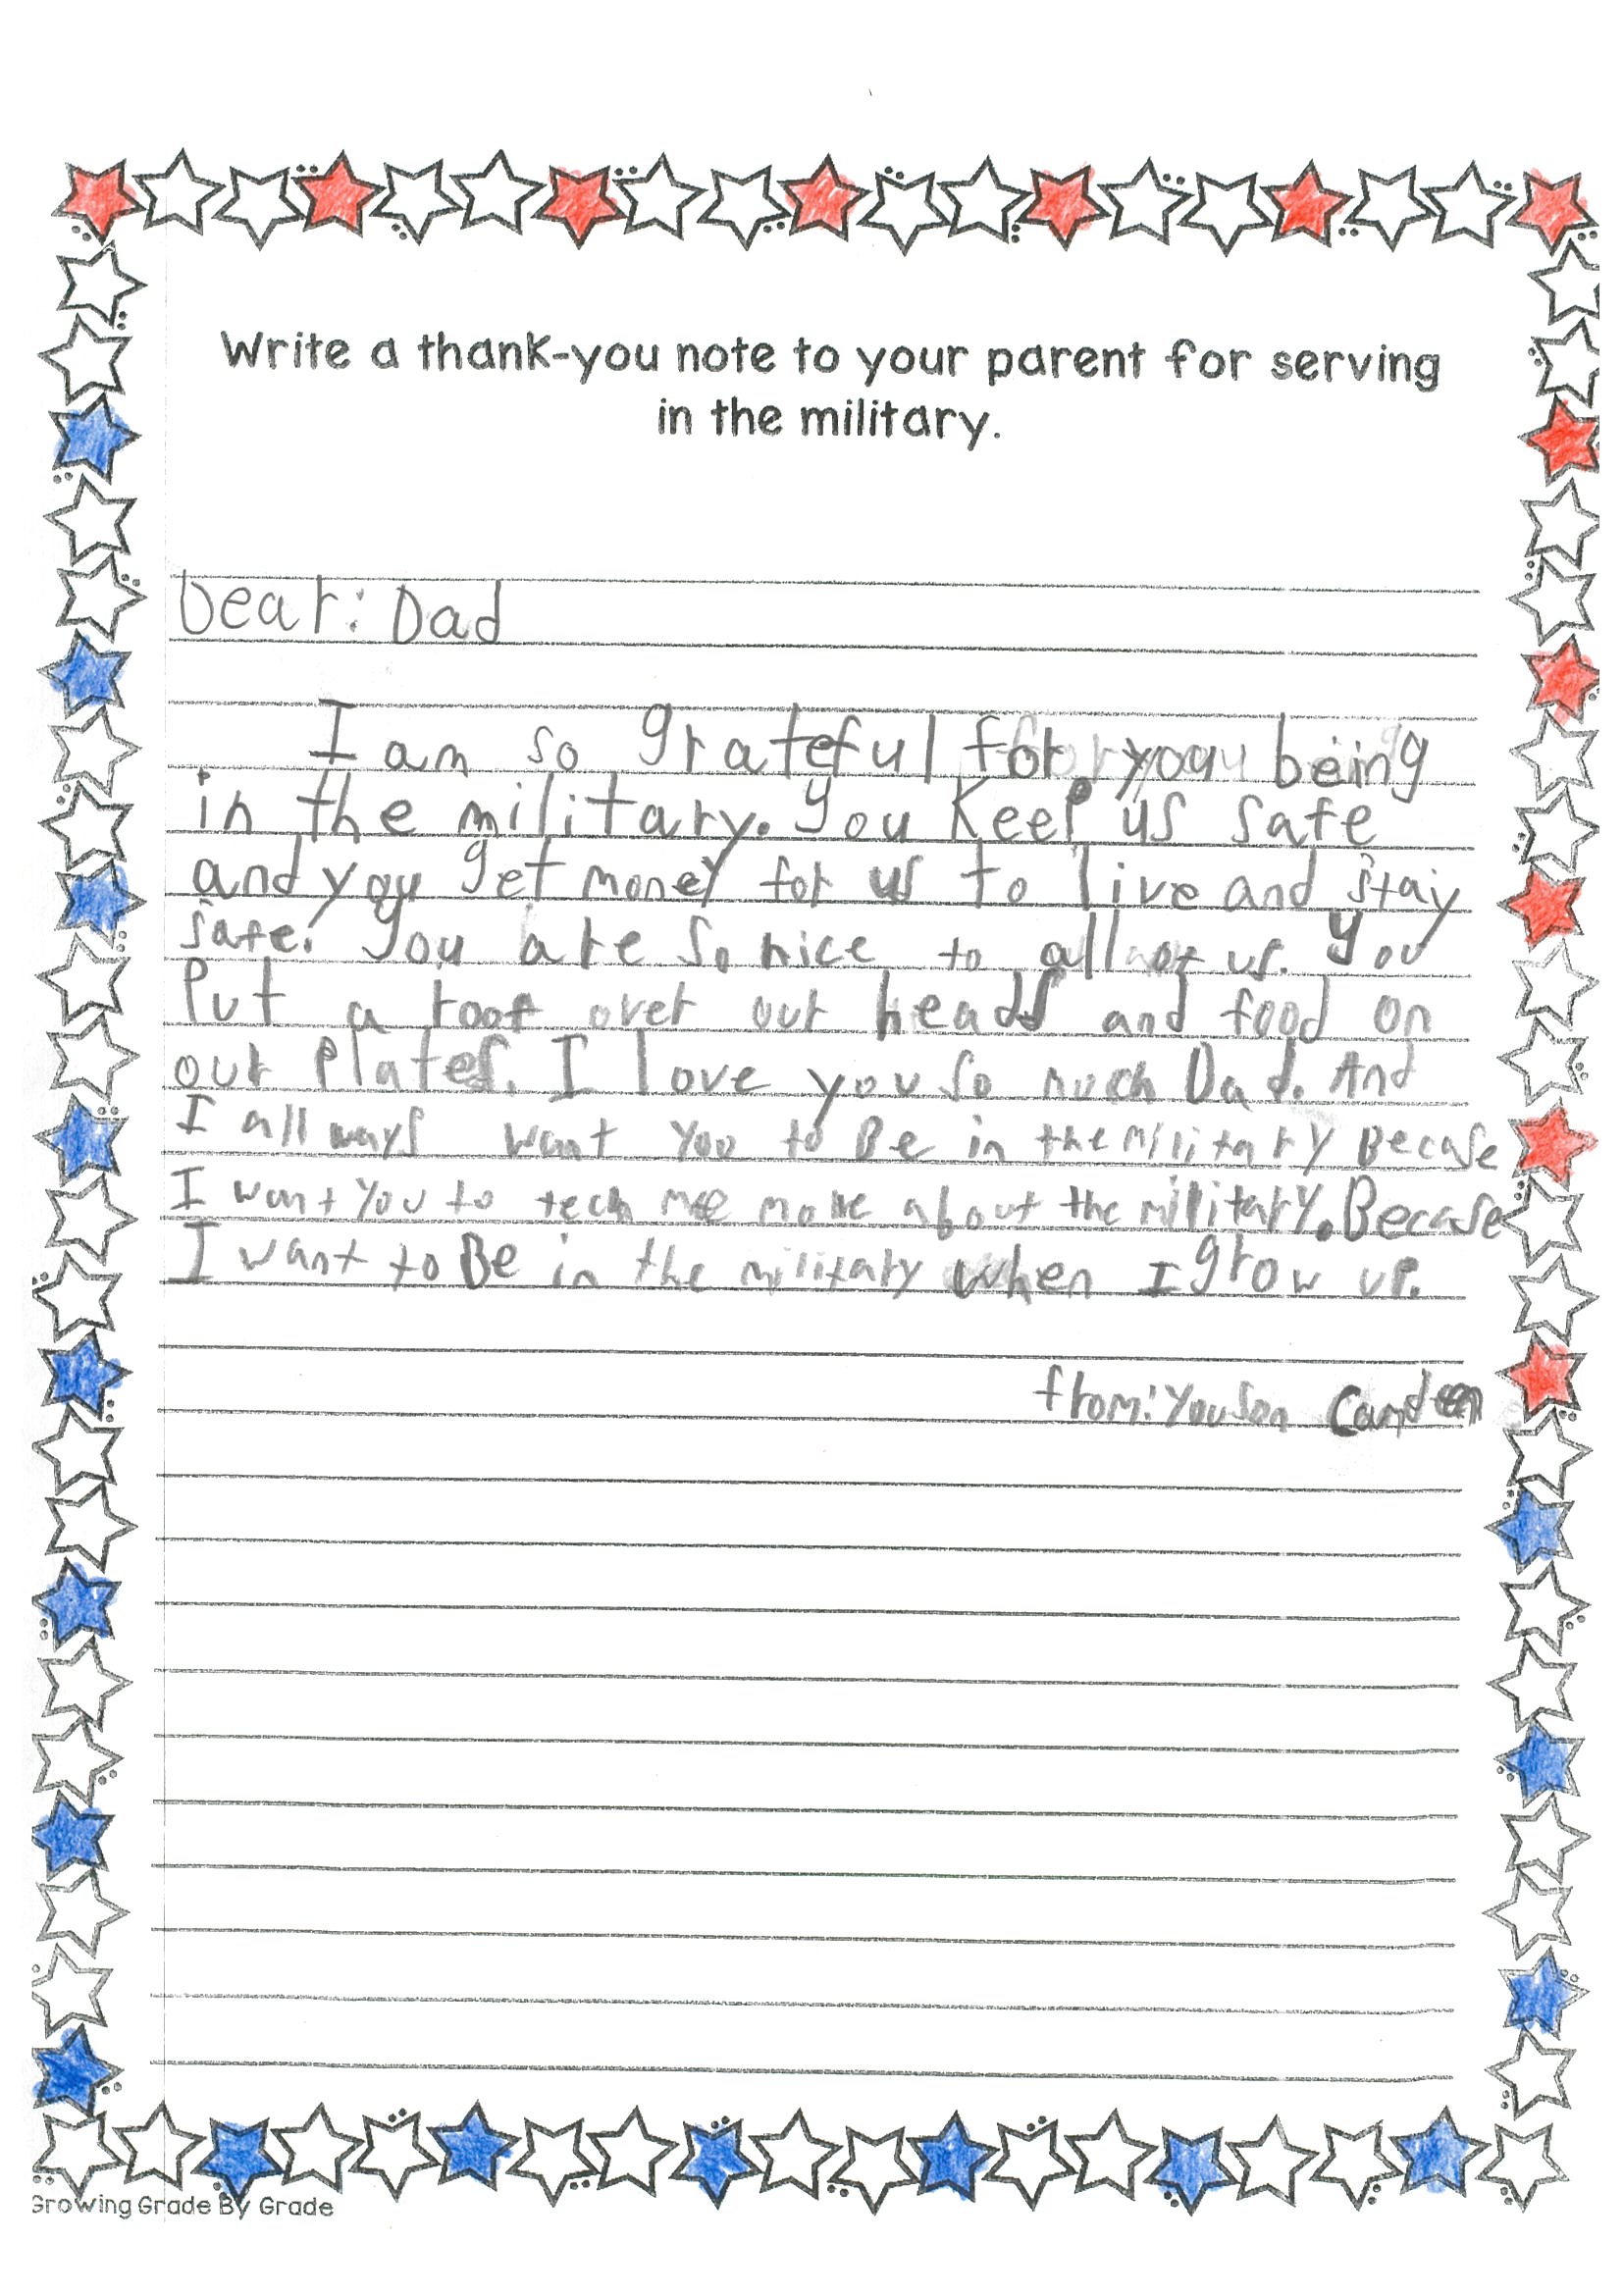 Write a thank-you note to your parent for serving
in the military.
Dear: Dad
I am so grateful for you being
in the military. You Keep us safe
and you get money for us to live and stay
safe. You are so nice to all of us. You
Put a roof over our heads and food on
our Plates. I love you so much Dad. And
I all ways want you to Be in the military Becase
I want you to tech me more about the military. Becase
I want to Be in the military when I grow up.
from: You Son Camden
Growing Grade By Grade